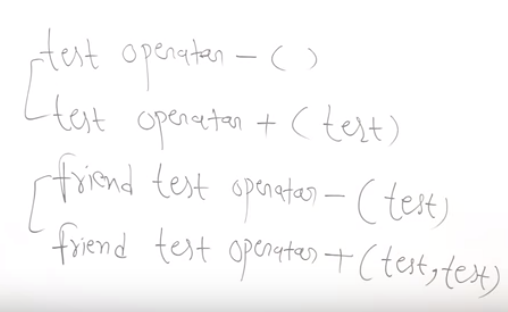 test operator - ( )
test operator + (test)
friend test operator - (test)
friend test operator + (test, test)